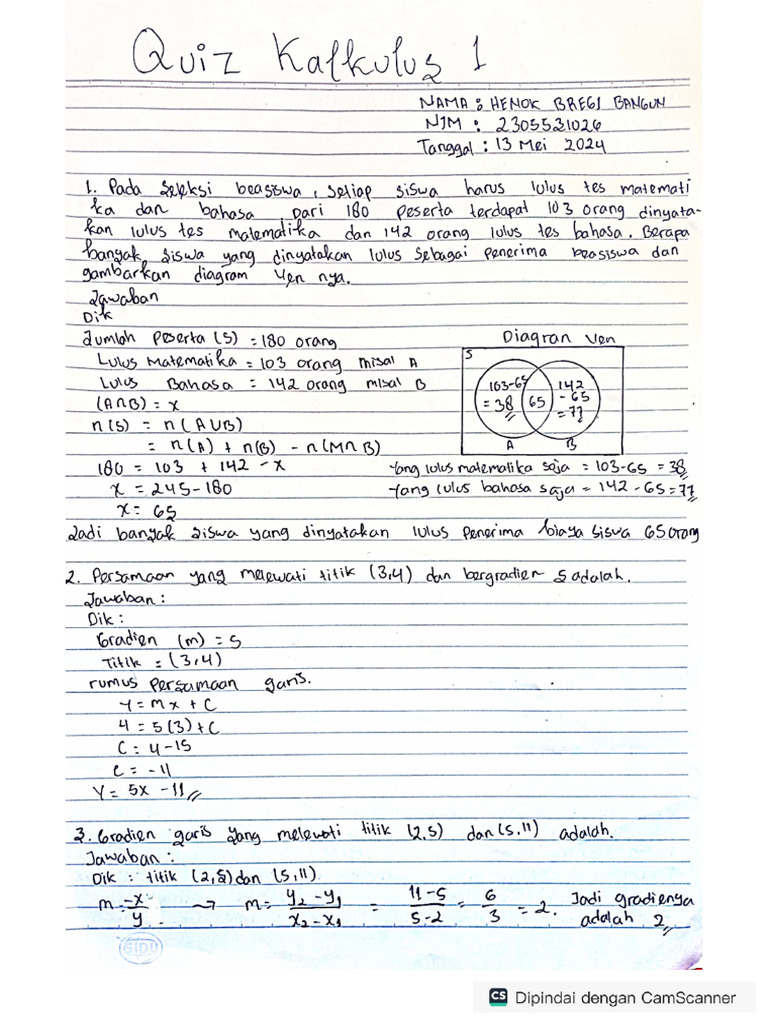 Quiz Kalkulus 1
NAMA : HENOK BREGI BANGUN
NIM : 2305531026
Tanggal : 13 Mei 2024
1. Pada Seleksi beasiswa, setiap siswa harus lulus tes matemati
ka dan bahasa Dari 180 peserta terdapat 103 orang dinyata-
kan lulus tes matematika dan 142 orang lulus tes bahasa. Berapa
banyak siswa yang dinyatakan lulus sebagai penerima beasiswa dan
gambarkan diagram Ven nya.
Jawaban
Dik
Jumlah Peserta (S) = 180 orang
Lulus Matematika = 103 orang misal A
Lulus Bahasa = 142 orang misal B
(A∩B) = x
n(S) = n(A∪B)
= n(A) + n(B) - n(M∩B)
180 = 103 + 142 - x
x = 245-180
x = 65
Diagran Ven
S
103-65
= 38
65
142
- 65
= 77
A
B
Yang lulus matematika saja = 103-65 = 38
Yang lulus bahasa saja = 142 - 65 = 77
Jadi banyak siswa yang dinyatakan lulus penerima biaya siswa 65 orang
2. Persamaan yang melewati titik (3,4) dan bergradien 5 adalah.
Jawaban :
Dik :
Gradien (m) = 5
Titik = (3,4)
rumus persamaan garis.
Y = mx + C
4 = 5(3) + C
C = 4-15
C = -11
Y = 5x - 11
3. Gradien garis yang melewati titik (2,5) dan (5,11) adalah.
Jawaban :
Dik : titik (2,5) dan (5,11)
m = -x/y → m = y₂-y₁/x₂-x₁ = 11-5/5-2 = 6/3 = 2. Jadi gradienya
adalah 2
SIDU
CS Dipindai dengan CamScanner